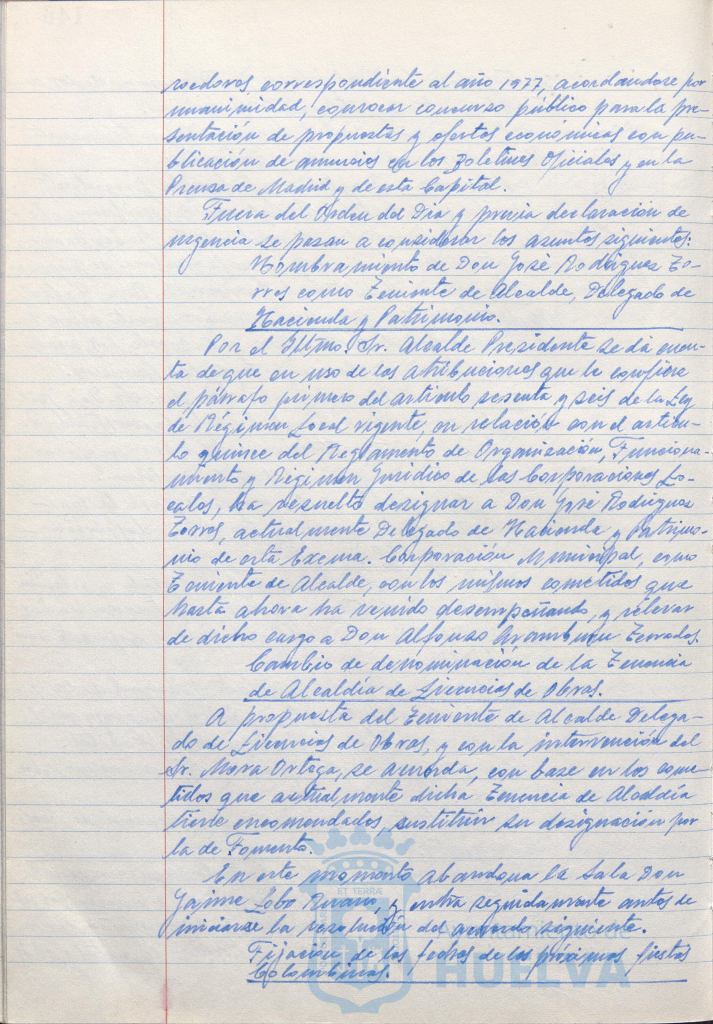 rocdoros, correspondiente al año 1977, acordándose por
unanimidad, convocar concurso público para la pre-
sentación de propuestas y ofertas económicas con pu-
blicación de anuncios en los Boletines Oficiales, y en la
Prensa de Madrid y de esta Capital.
Fuera del Orden del Dia y previa declaración de
urgencia se pasan a considerar los asuntos siguientes:
Nombramiento de Don José Rodríguez To-
rres como Teniente de Alcalde, Delegado de
Hacienda y Patrimonio.
Por el Iltmo. Sr. Alcalde Presidente se dá cuen-
ta de que en uso de las atribuciones que le confiere
el párrafo primero del artículo sesenta y seis de la Ley
de Régimen Local vigente, en relación con el artícu-
lo quince del Reglamento de Organización, Funciona-
miento y Régimen Jurídico de las Corporaciones Lo-
cales, ha resuelto designar a Don José Rodríguez
Torres, actualmente Delegado de Hacienda y Patrimo-
nio de esta Excma. Corporación Municipal, como
Teniente de Alcalde, con los mismos cometidos que
hasta ahora ha venido desempeñando, y relevar
de dicho cargo a Don Alfonso Aramburu Terrades.
Cambio de denominación de la Tenencia
de Alcaldía de Licencias de Obras.
A propuesta del Teniente de Alcalde Delega-
do de Licencias de Obras, y con la intervención del
Sr. Mora Ortega, se acuerda, con base en los come-
tidos que actualmente dicha Tenencia de Alcaldía
tiene encomendados, sustituir su designación por
la de Fomento.
En este momento abandona la Sala Don
Jaime Lobo, y entra seguidamente antes de
iniciarse la resolución del acuerdo siguiente.
Fijación de las fechas de las próximas fiestas
Colombinas.
ET TERRÆ
HUELVA